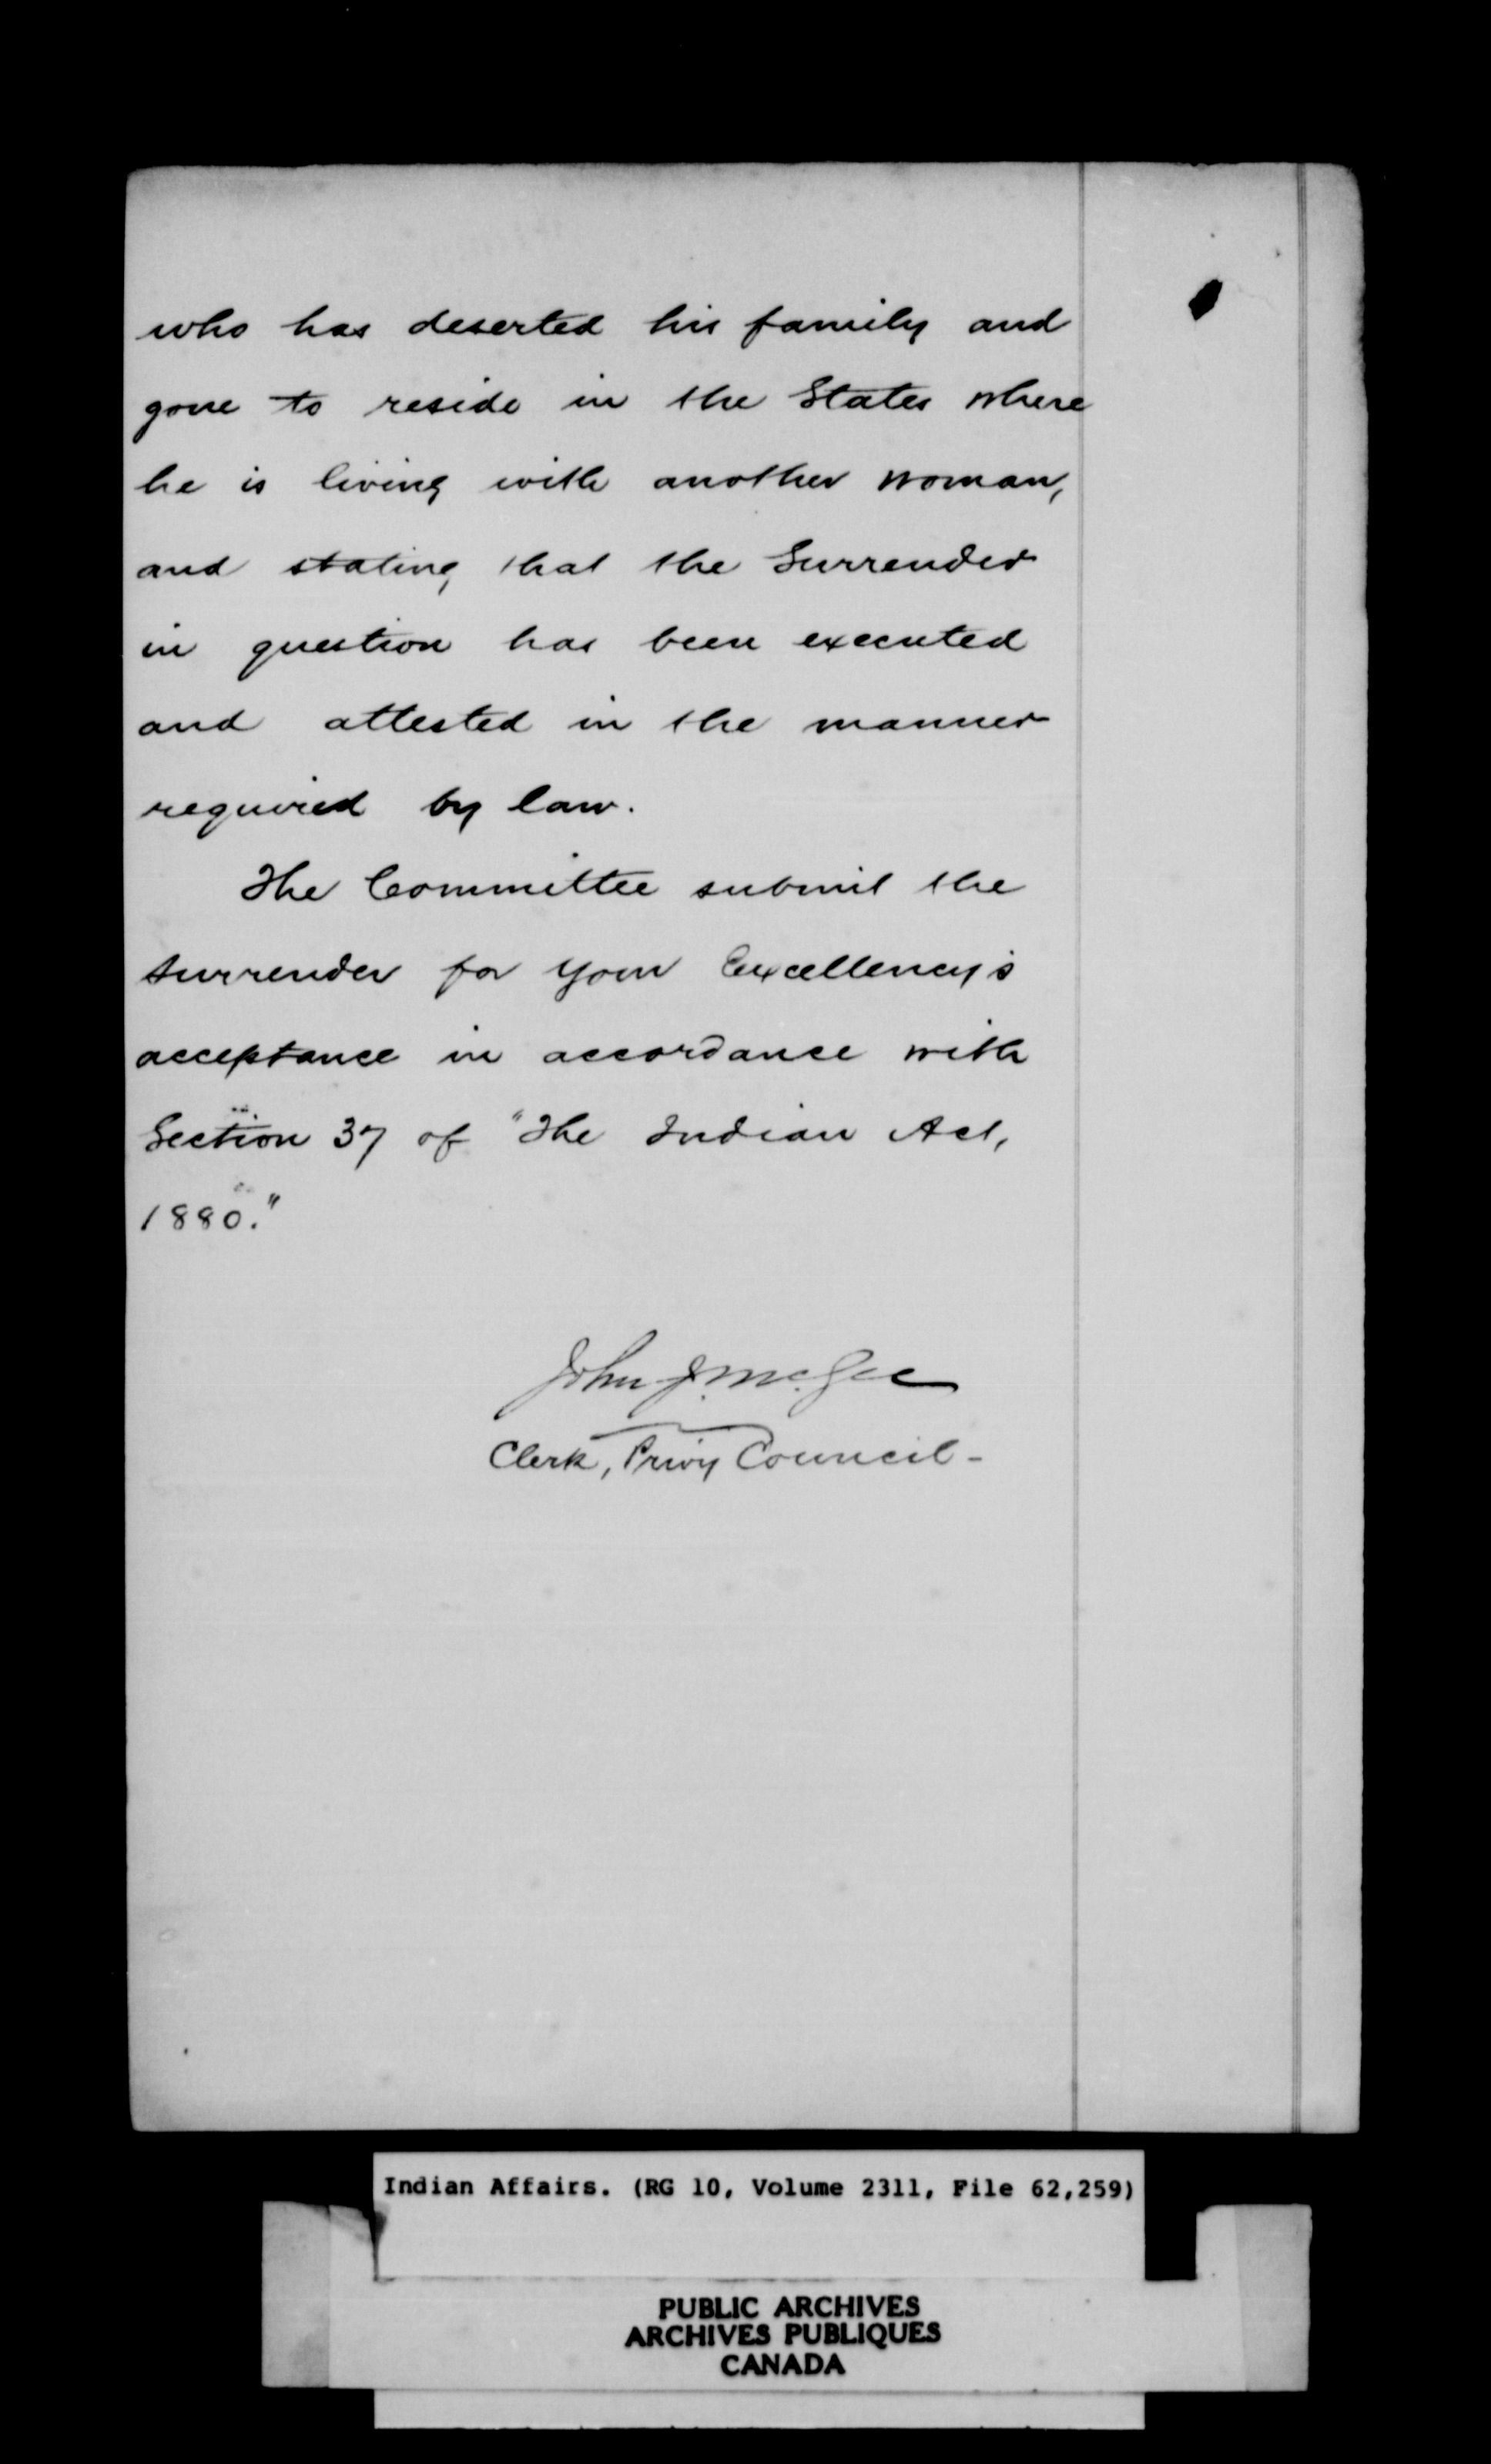 who has deserted his family and
gone to reside in the States where
he is living with another woman,
and stating that the Surrender
in question has been executed
and attested in the manner
required by law.
The Committee submit the
surrender for Your Excellency's
acceptance in accordance with
Section 37 of "The Indian Act,
1880."
John J. McGee
Clerk, Privy Council-
Indian Affairs. (RG 10, Volume 2311, File 62,259)
PUBLIC ARCHIVES
ARCHIVES PUBLIQUES
CANADA